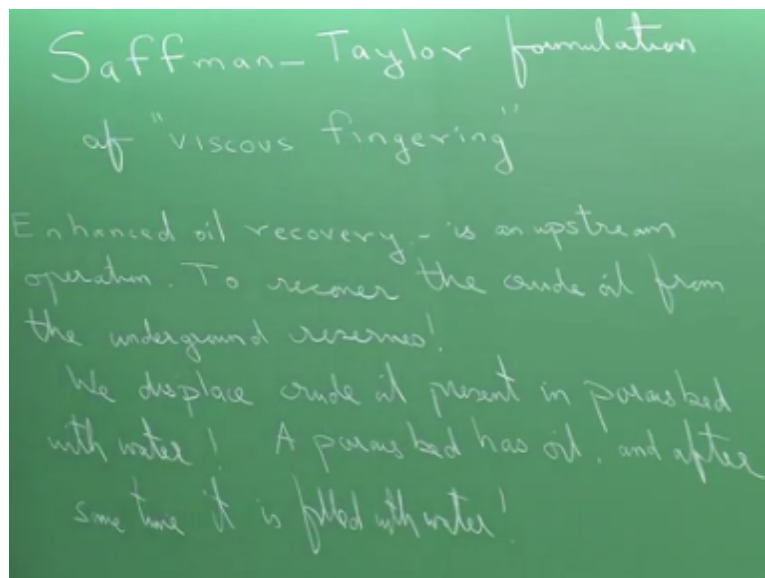 Saffman-Taylor formulation
of "viscous fingering"
Enhanced oil recovery - is an upstream
operation. To recover the crude oil from
the underground reserves!
We displace crude oil present in porous bed
with water! A porous bed has oil, and after
some time it is filled with water!